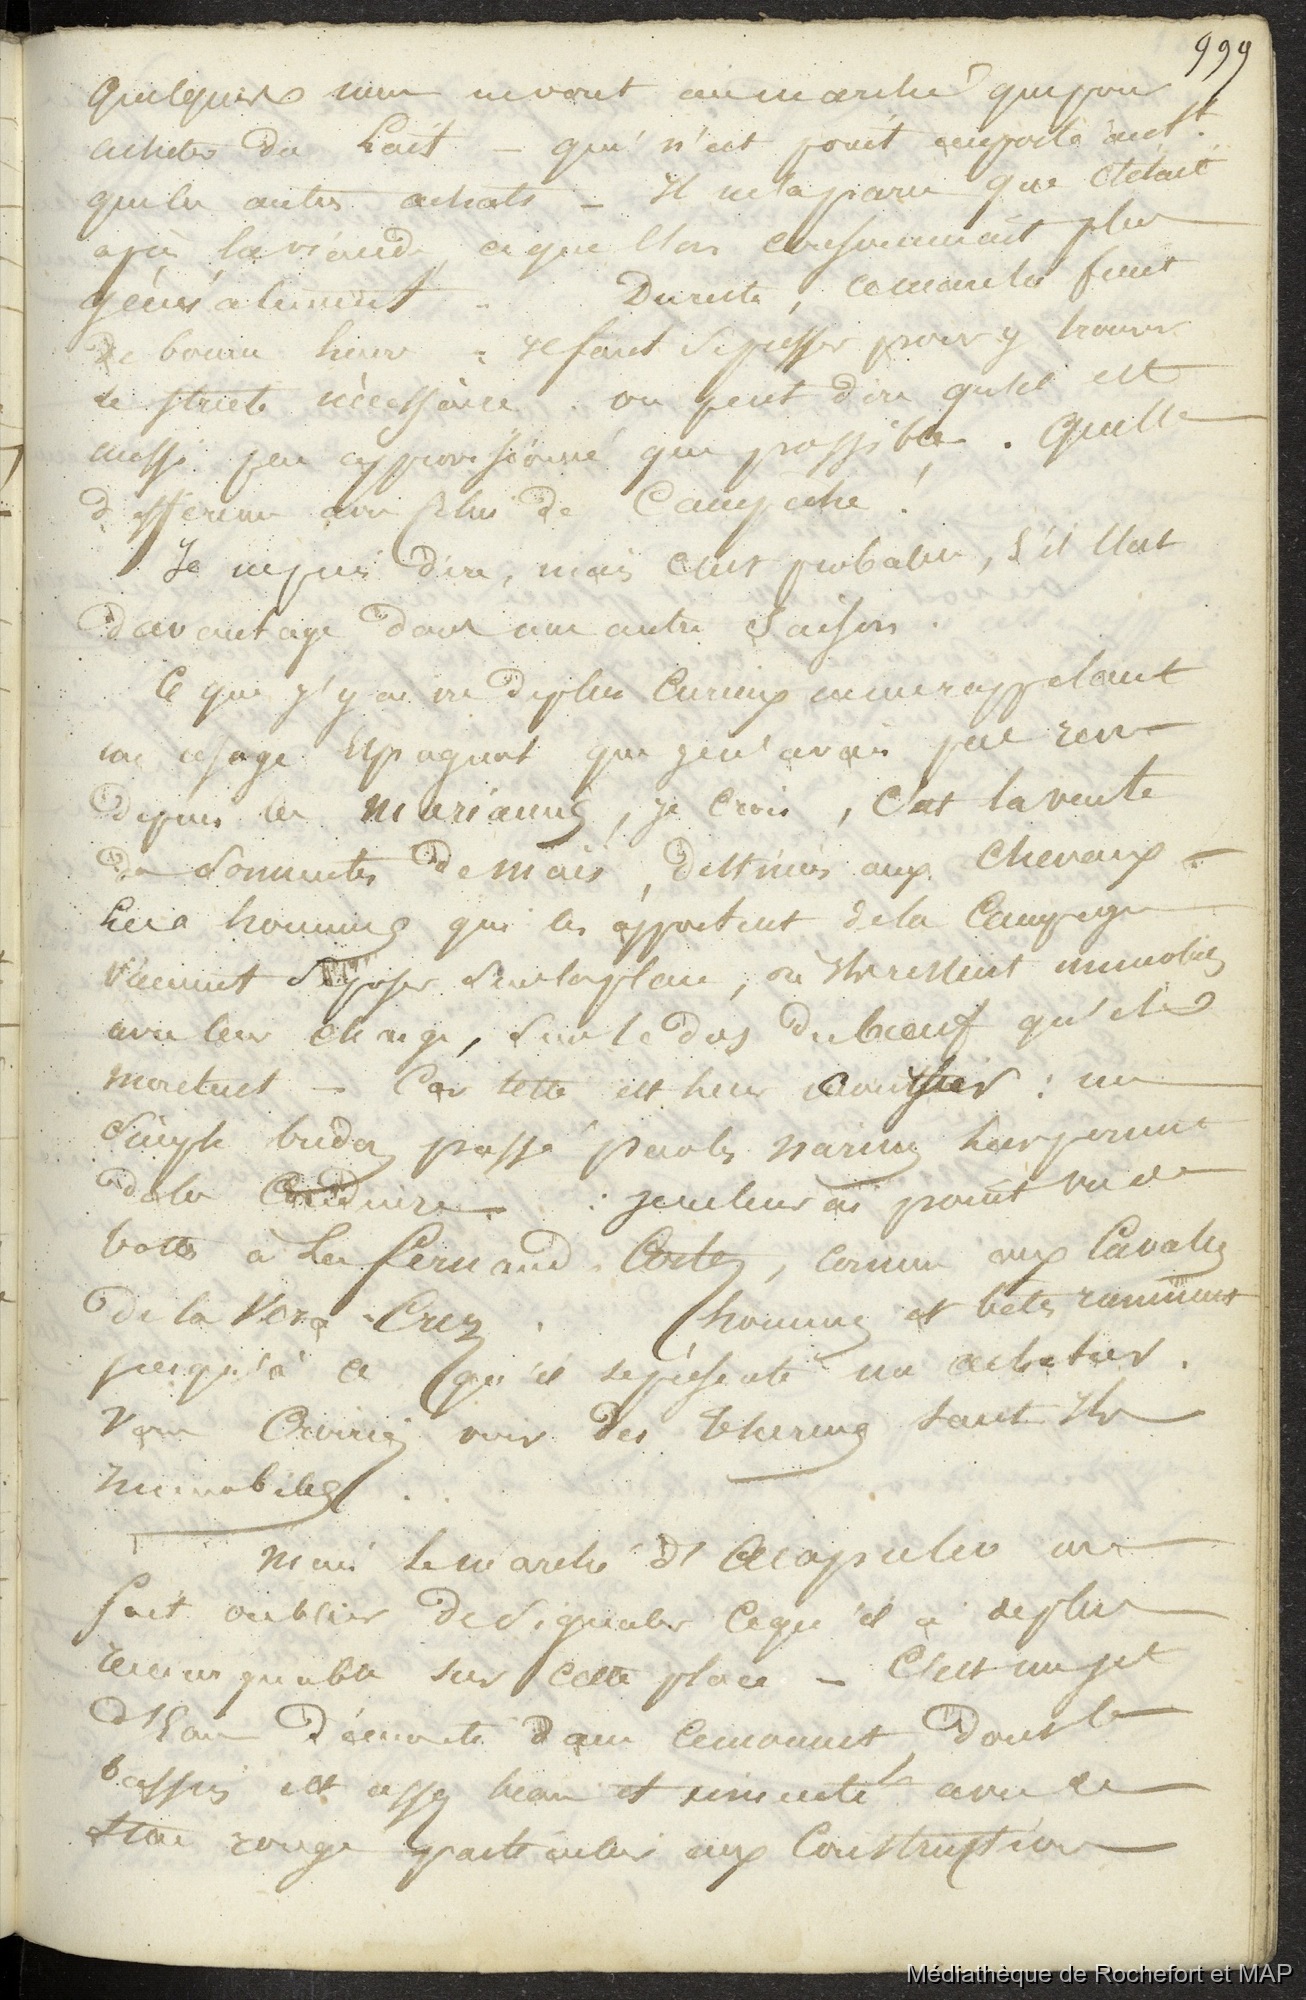 999
quelques unes ne vont au marché que pour
acheter du Lait — qui n'est point emporté autt.
que les autres achats — Il m'a paru que c'était
après la viande, ce que l'on consommait plus
généralement. Du reste, ce marché finit
de bonne heure : il faut se presser pour y trouver
le stricte nécessaire. on peut dire qu'il est
aussi peu approvisionné que possible. Quelle
différence avec celui de Campêche !
Je ne puis dire, mais c'est probable, s'il l'est
davantage dans une autre saison.
Ce que j'y ai vu de plus curieux en me rappelant
un usage Espagnol que je n'avais pas revu
depuis les Mariannes, je crois, c'est la vente
de sommités de maïs, destinées aux chevaux —
Les hommes qui les apportent de la campagne
viennent se poser sur la place, où ils restent immobiles
avec leur charge, sur le dos du bœuf qu'ils
montent — Car telle est leur monture : un
simple bridon passé par les narines leur permet
de le conduire. : je ne leur ai point vu de
bottes à la Fernand Cortez, comme aux Cavaliers
de la Vera-Cruz. hommes et bêtes ruminent
jusqu'à ce qu'il se présente un acheteur.
Vous croiriez voir des thermes tant ils
immobiles.
Mais le marché d'Acapulco me
fait oublier de signaler ce qu'il a de plus
remarquable sur cette place — C'est un jet
d'Eau démonté dans ce moment, dont le
bassin est assez beau et cimenté avec ce
stuc rouge particulier aux constructions
Médiathèque de Rochefort et MAP